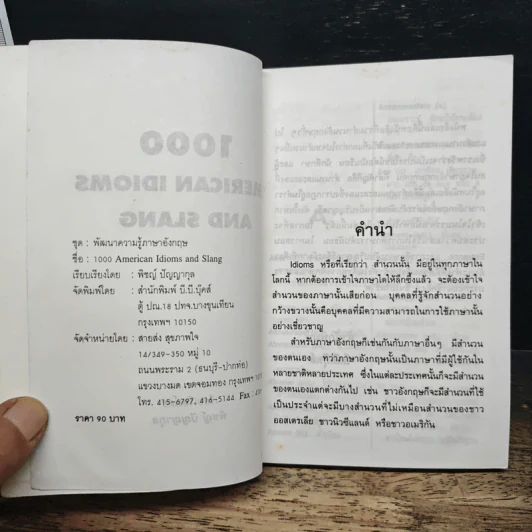 ชุด : พัฒนาความรู้ภาษาอังกฤษ
ชื่อ : 1000 American Idioms and Slang
เรียบเรียงโดย : พิชญ์ ปัญญากุล
จัดพิมพ์โดย : สำนักพิมพ์ บี.บี.บุ๊คส์
ตู้ ปณ.18 ปทจ.บางขุนเทียน
กรุงเทพฯ 10150
จัดจำหน่ายโดย : สายส่ง สุขภาพใจ
14/349-350 หมู่ 10
ถนนพระราม 2 (ธนบุรี-ปากท่อ)
แขวงบางมด เขตจอมทอง กรุงเทพฯ
โทร. 415-6797, 416-5144 Fax :
ราคา 90 บาท
คำนำ
Idioms หรือที่เรียกว่า สำนวนนั้น มีอยู่ทุกภาษาใน
โลกนี้ หากต้องการเข้าใจภาษาใดให้ลึกซึ้งแล้ว จะต้องเข้าใจ
สำนวนของภาษานั้นเสียก่อน บุคคลที่รู้จักสำนวนอย่าง
กว้างขวางนั้นคือบุคคลที่มีความสามารถในการใช้ภาษานั้น
อย่างเชี่ยวชาญ
สำหรับภาษาอังกฤษก็เช่นกันกับภาษาอื่นๆ มีสำนวน
ของตนเอง ทว่าภาษาอังกฤษนั้นเป็นภาษาที่มีผู้ใช้กันใน
หลายชาติหลายประเทศ ซึ่งในแต่ละประเทศนั้นก็จะมีสำนวน
ของตนเองแตกต่างกันไป เช่น ชาวอังกฤษก็จะมีสำนวนที่ใช้
เป็นประจำแต่จะมีบางสำนวนที่ไม่เหมือนสำนวนของชาว
ออสเตรเลีย ชาวนิวซีแลนด์ หรือชาวอเมริกัน